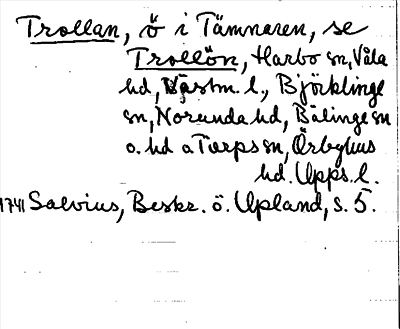 Trollan, ö i Tämnaren, se
Trollön, Harbo sn, Våla
hd, Västm. l., Björklinge
sn, Norunda hd, Bälinge sn
o. hd o Tierps sn, Örbyhus
hd. Upps. l.
1741 Salvius, Beskr. ö. Upland, s. 5.